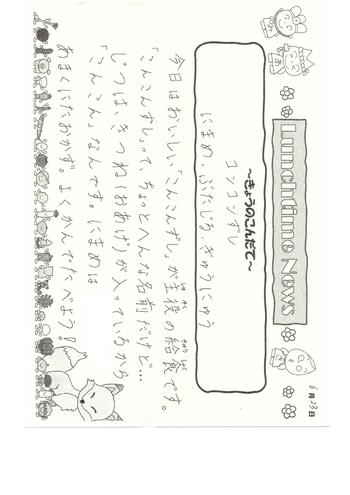 Lunchtime News
6月23日
～きょうのこんだて～
コンコンずし
にまめ、ぶたじる、ぎゅうにゅう
今日はおいしい「こんこんずし」が主役の給食です。
「こんこんずし」って、ちょっとへんな名前だけど…
じつは、きつね(おあげ)が入っているから
「こんこん」なんです。にまめは
あまくにたおかず。よくかんでたべよう!